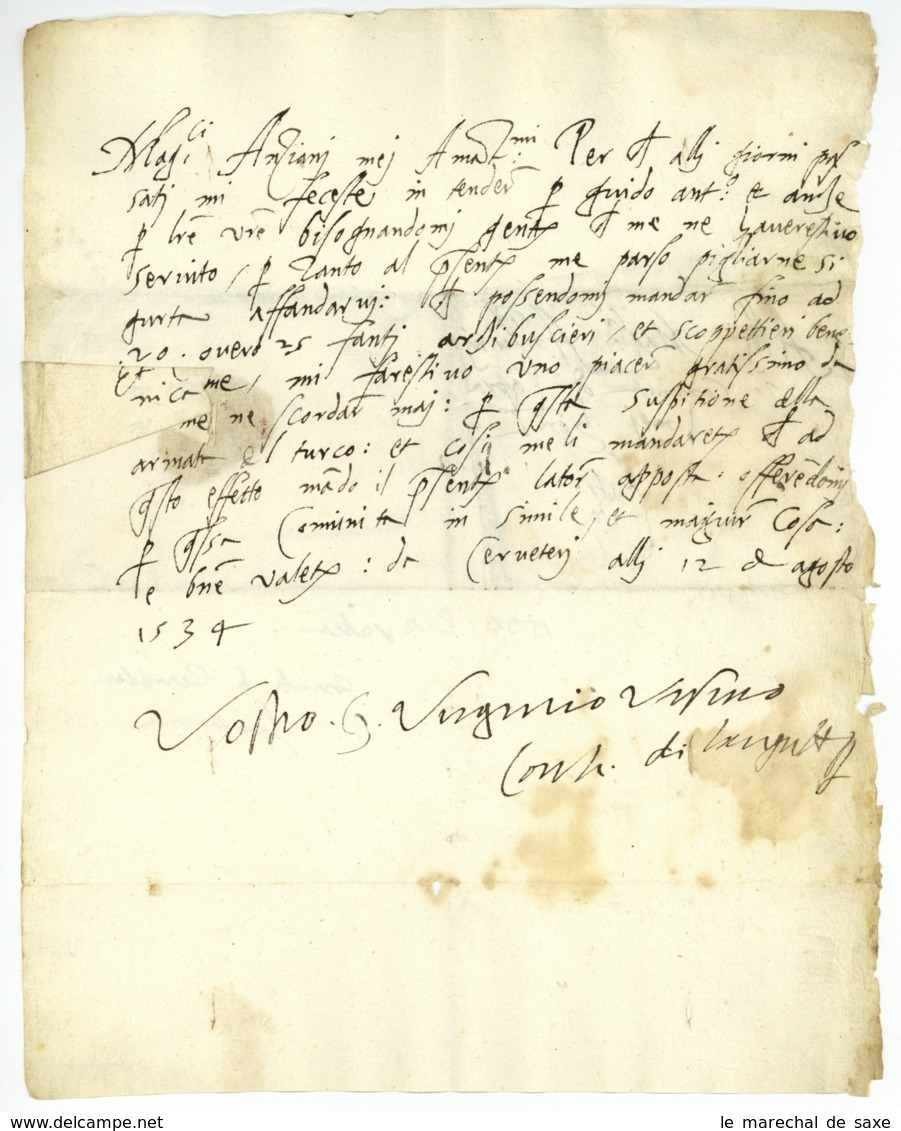 Mag.ci Anziani mei Amat.mi Per che alli giorni pas
sati mi feceste intender p guido ant.o et anche
p lre vre bisognandomi gente che me ne haverestivo
servito, p tanto al pnte me parso pigliarne si
gurta affandarvi: che possendomi mandar fino ad
20. overo 25 fanti archibuscieri, et scoppettieri bene
mi farestivo uno piacer gratissimo da
me ne scordar mai: p qsta suspitione della
armata del turco: et cosi me li mandarete che ad
qsto effetto mādo il pnte lator apposta: offerēdomi
p qsta Comunita in simile, et magiur Cosa:
e bnē valete: da Cerveteri alli 12 de agosto
1534
Vostro. Virginio Ursino
Conte. di
le marechal de saxe